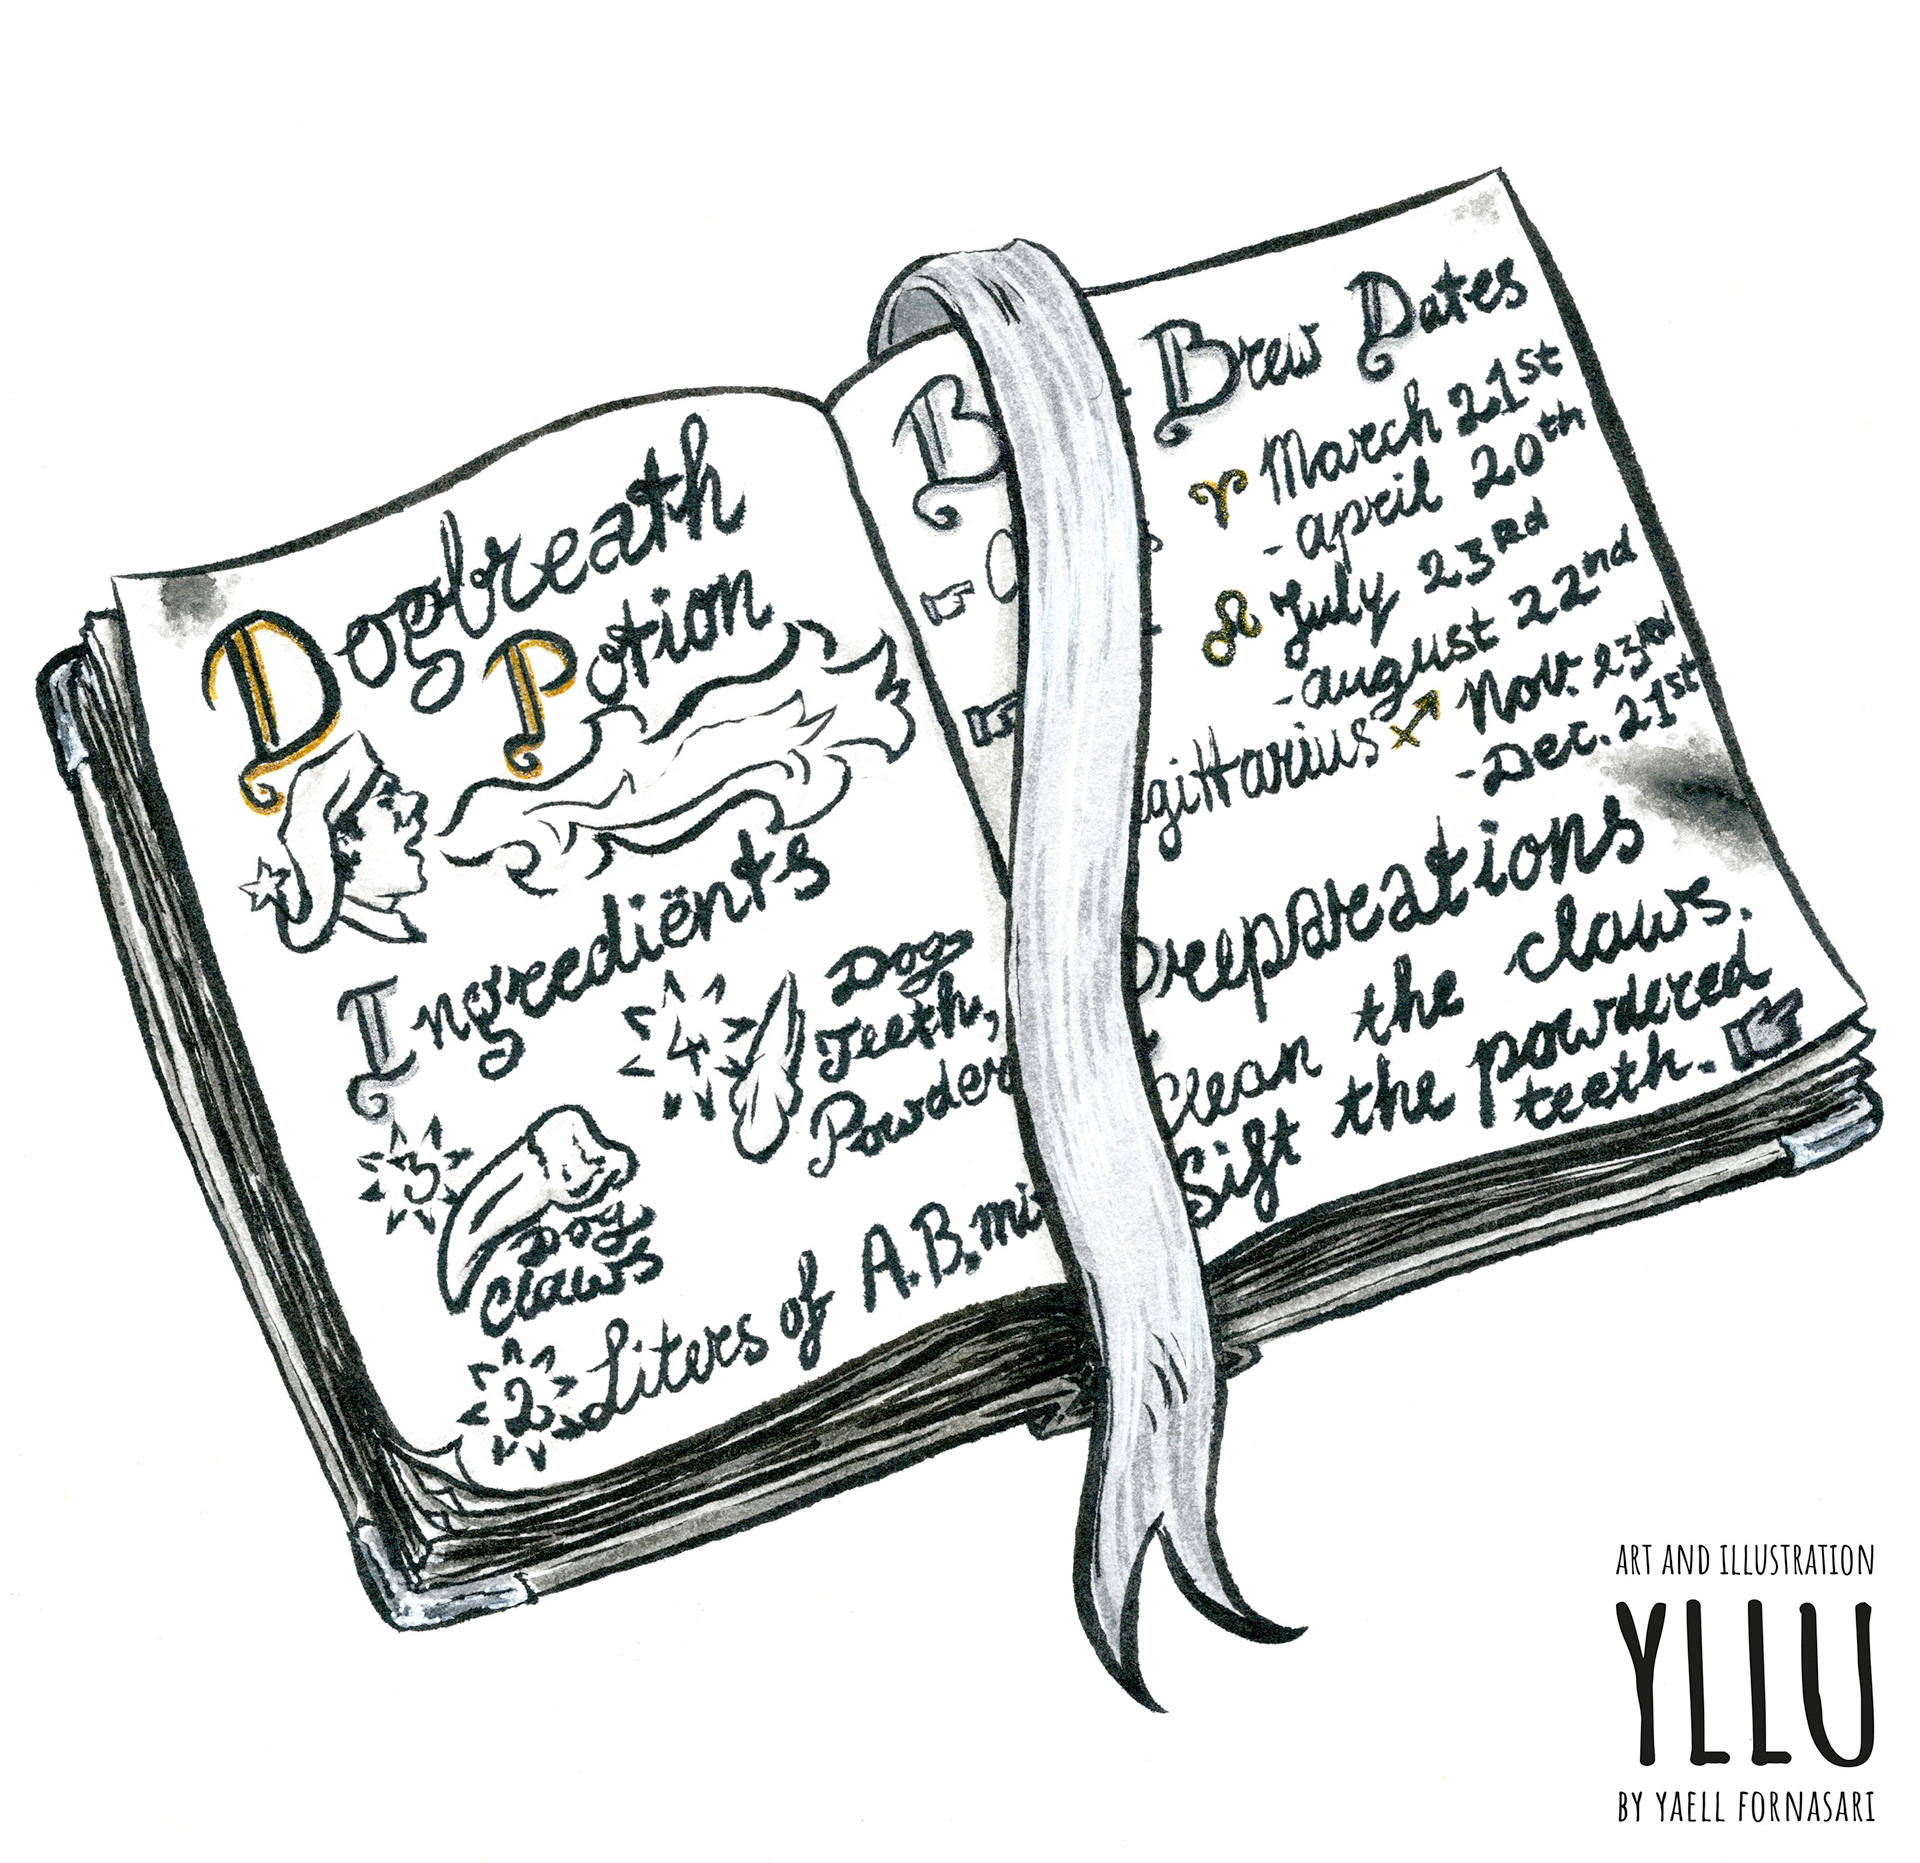 Dogbreath
Potion
Ingrediënts
4
Dog
Teeth,
3
Dog
Claws
2 Liters of A.B.
Brew Dates
♈ March 21st
- april 20th
♌ July 23Rd
- august 22nd
♐ Nov. 23Rd
- Dec. 21st
Clean the claws.
Sift the powdered
teeth.
ART AND ILLUSTRATION
YLLU
BY YAELL FORNASARI